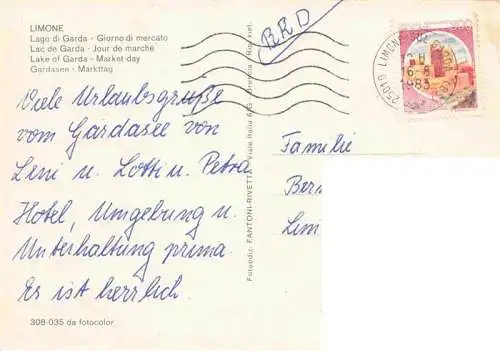 LIMONE
Lago di Garda - Giorno di mercato
Lac de Garda - Jour de marché
Lake of Garda - Market-day
Gardasee - Markttag
BRD
25010 LIMONE SUL
1983
Viele Urlaubsgrüße
vom Gardasee von
Leni u. Lotti u. Petra
Hotel, Umgebung u.
Unterhaltung prima.
Es ist herrlich.
Familie
Ber
Lini
Fotoediz. FANTONI-RIVETTA - Viale Italia 6/G
308-035 da fotocolor